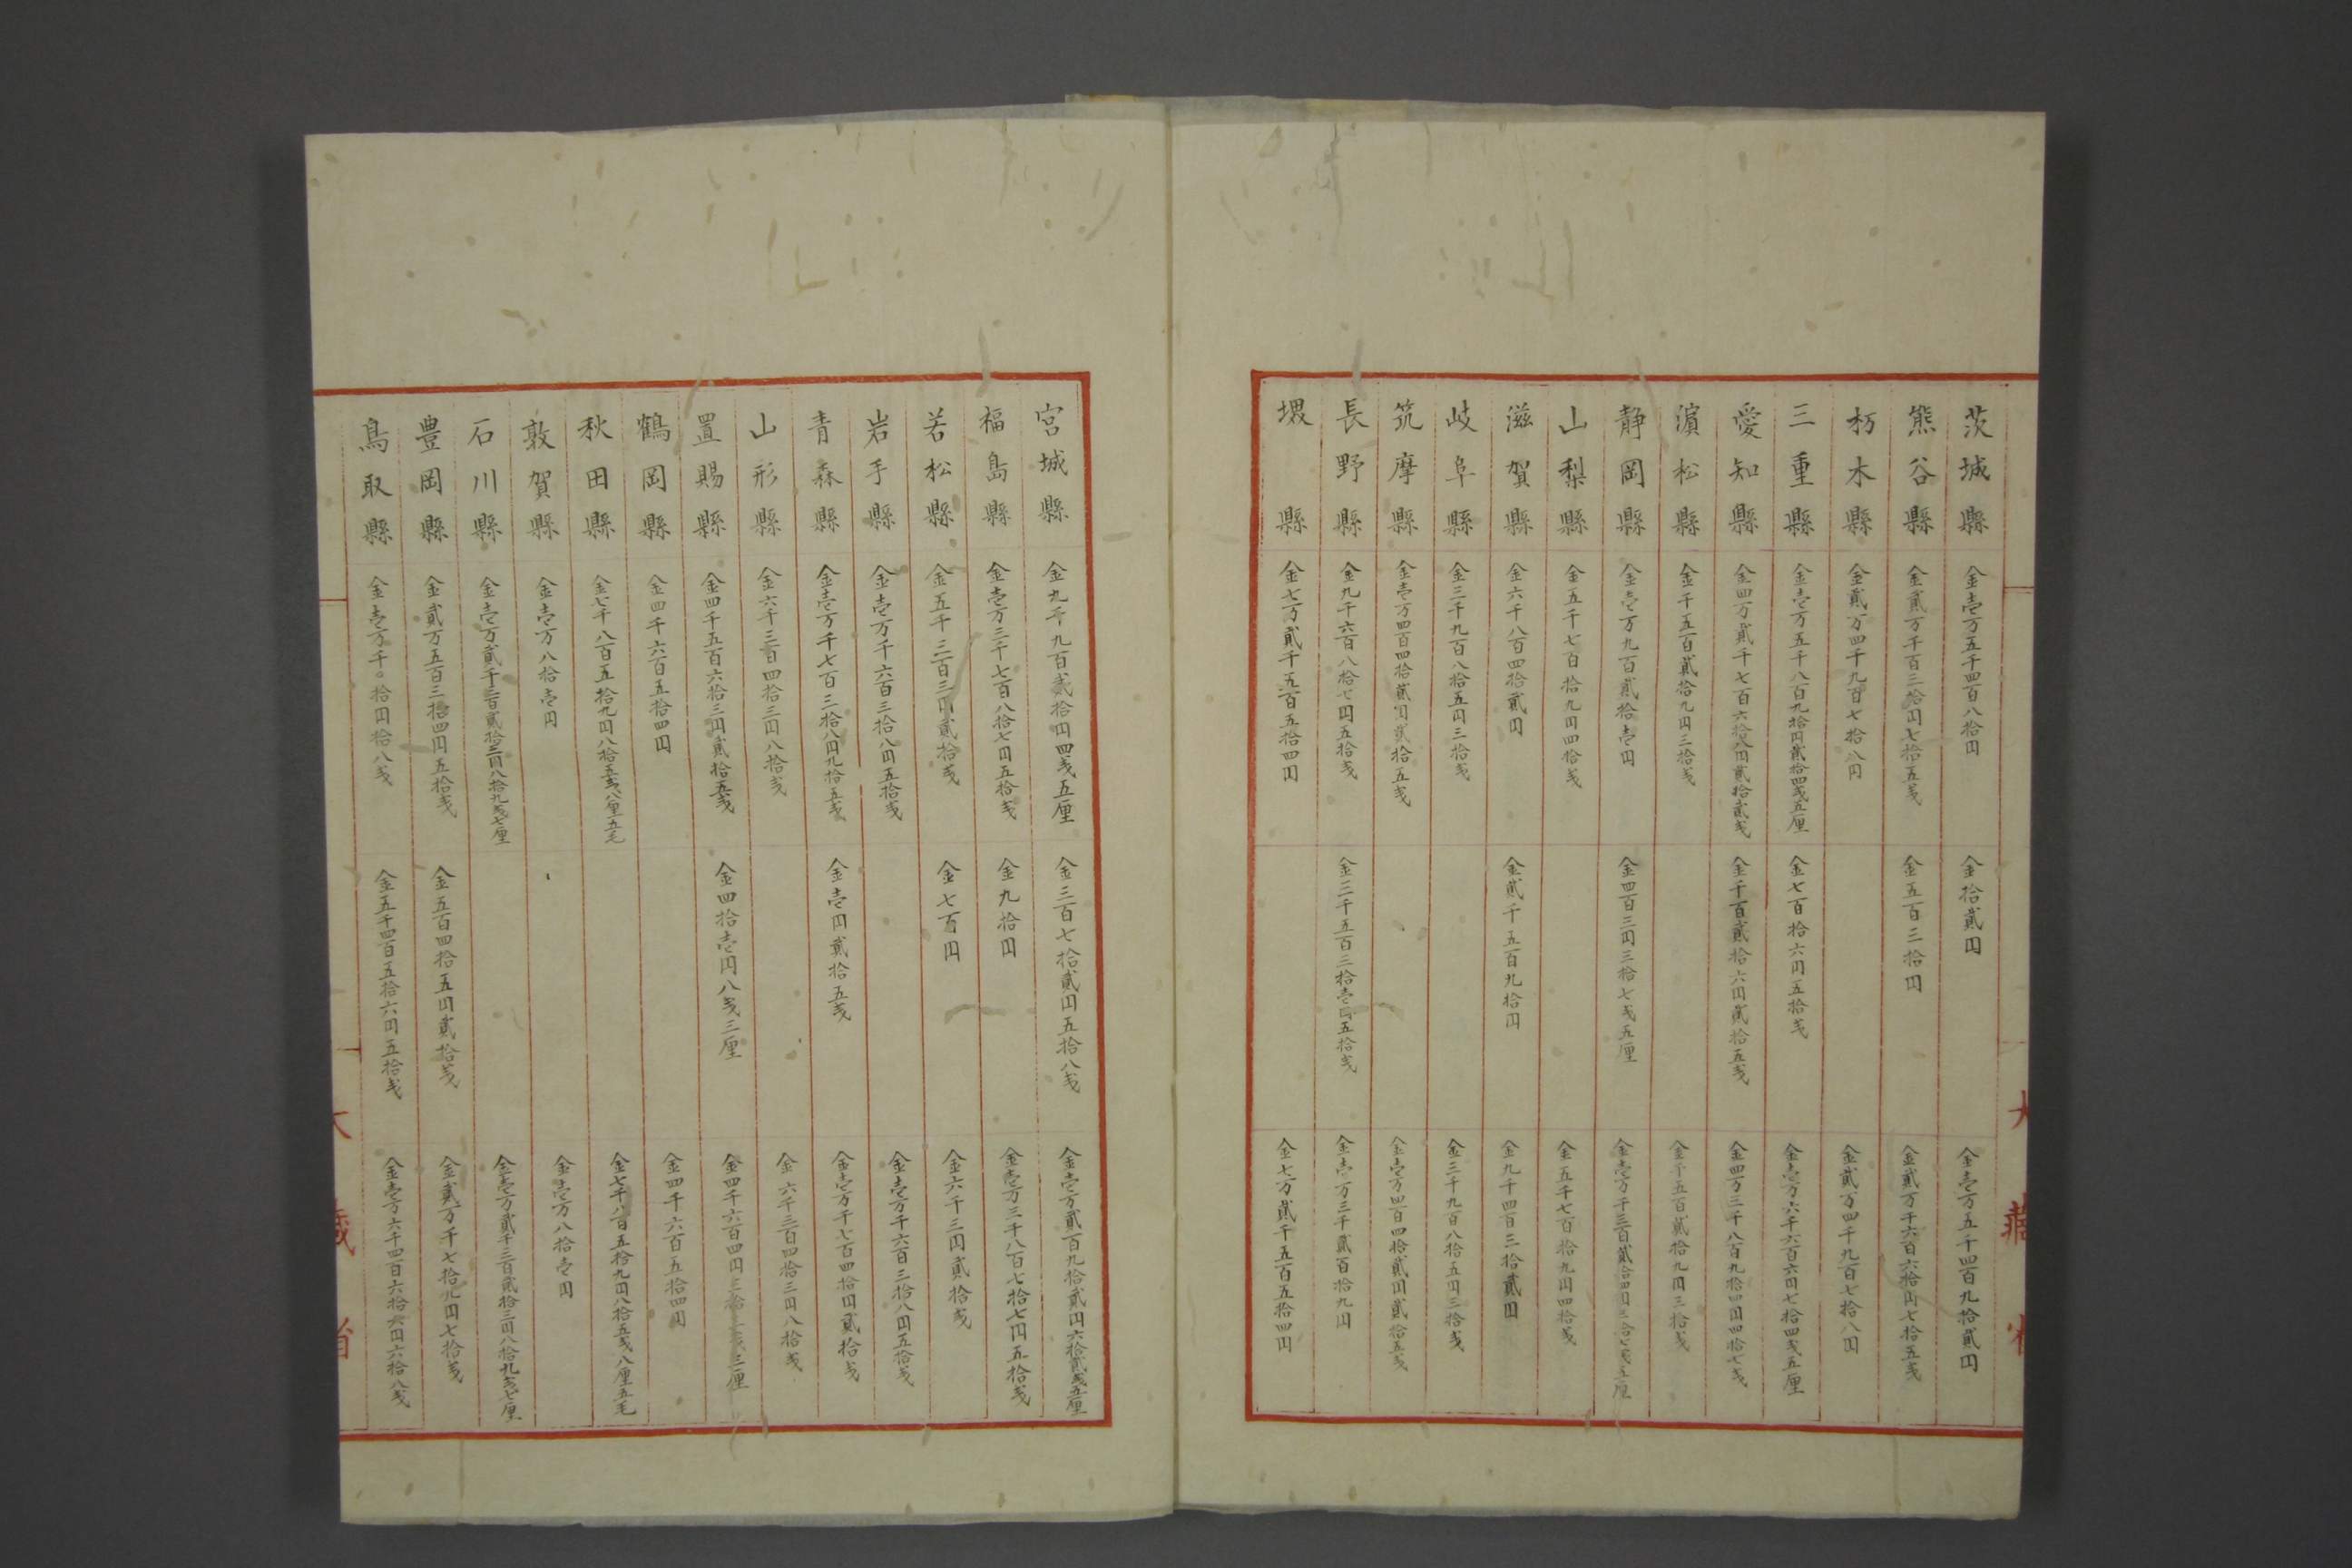 茨城縣 金壱万五千四百八拾円 金拾貳円 金壱万五千四百九拾貳円
熊谷縣 金貳万千百三拾円七拾五戋 金五百三拾円 金貳万千六百六拾円七拾五戋
栃木縣 金貳万四千九百七拾八円 金貳万四千九百七拾八円
三重縣 金壱万五千八百九拾円貳拾四戋五厘 金七百拾六円五拾戋 金壱万六千六百六円七拾四戋五厘
愛知縣 金四万貳千七百六拾八円貳拾貳戋 金千百貳拾六円貳拾五戋 金四万三千八百九拾四円四拾七戋
濵松縣 金千五百貳拾九円三拾戋 金千五百貳拾九円三拾戋
静岡縣 金壱万九百貳拾壱円 金四百三円三拾七戋五厘 金壱万千三百貳拾四円三拾七戋五厘
山梨縣 金五千七百拾九円四拾戋 金五千七百拾九円四拾戋
滋賀縣 金六千八百四拾貳円 金貳千五百九拾円 金九千四百三拾貳円
岐阜縣 金三千九百八拾五円三拾戋 金三千九百八拾五円三拾戋
筑摩縣 金壱万四百四拾貳円貳拾五戋 金壱万四百四拾貳円貳拾五戋
長野縣 金九千六百八拾七円五拾戋 金三千五百三拾壱円五拾戋 金壱万三千貳百拾九円
堺縣 金七万貳千五百五拾四円 金七万貳千五百五拾四円
大藏省
宮城縣 金九千九百貳拾円四戋五厘 金三百七拾貳円五拾八戋 金壱万貳百九拾貳円六拾貳戋五厘
福島縣 金壱万三千七百八拾七円五拾戋 金九拾円 金壱万三千八百七拾七円五拾戋
若松縣 金五千三百三円貳拾戋 金七百円 金六千三円貳拾戋
岩手縣 金壱万千六百三拾八円五拾戋 金壱万千六百三拾八円五拾戋
青森縣 金壱万千七百三拾八円九拾五戋 金壱円貳拾五戋 金壱万千七百四拾円貳拾戋
山形縣 金六千三百四拾三円八拾戋 金六千三百四拾三円八拾戋
置賜縣 金四千五百六拾三円貳拾五戋 金四拾壱円八戋三厘 金四千六百四円三拾三戋三厘
鶴岡縣 金四千六百五拾四円 金四千六百五拾四円
秋田縣 金七千八百五拾九円八拾五戋八厘五毛 金七千八百五拾九円八拾五戋八厘五毛
敦賀縣 金壱万八拾壱円 金壱万八拾壱円
石川縣 金壱万貳千三百貳拾三円八拾九戋七厘 金壱万貳千三百貳拾三円八拾九戋七厘
豊岡縣 金貳万五百三拾四円五拾戋 金五百四拾五円貳拾戋 金貳万千七拾九円七拾戋
鳥取縣 金壱万千〇拾円拾八戋 金五千四百五拾六円五拾戋 金壱万六千四百六拾六円六拾八戋
大藏省